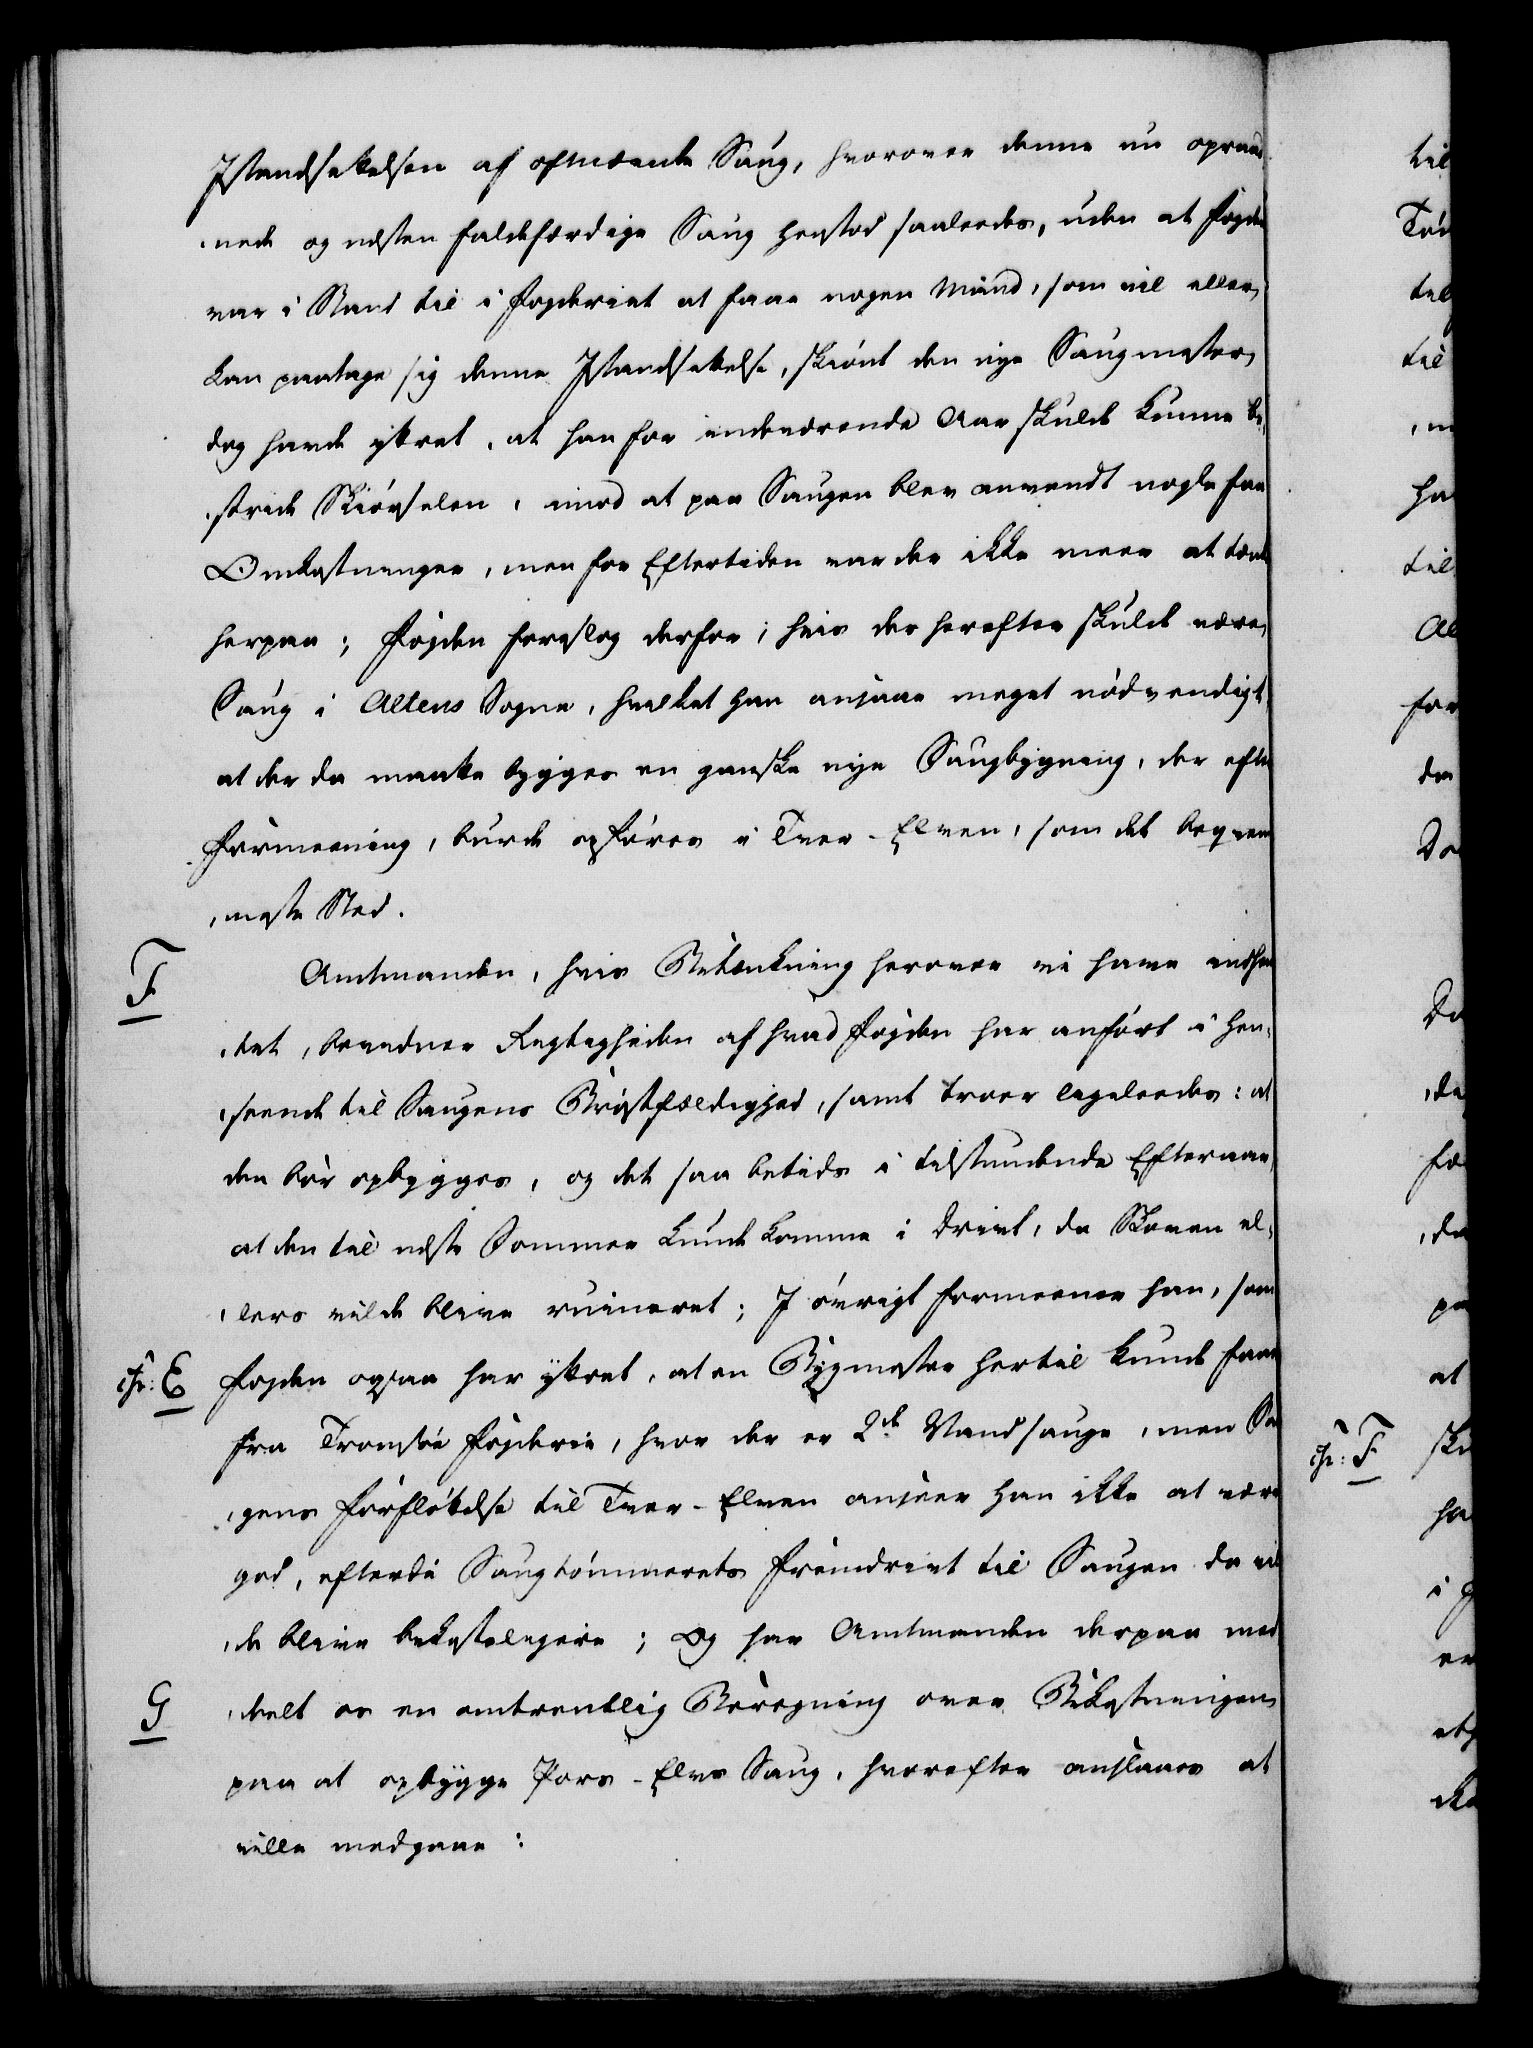 Istandsættelsen af oftmeente Saug, hvorover denne nu opraad-
nede og næsten faldefærdige Saug henstod saaledes, uden at Fogden
var i Stand til i Fogderiet at faae nogen Mand, som vil eller
kan paatage sig denne Istandsættelse, skiønt den nye Saugmester
dog havde yttret, at han for indeværende Aar skulde kunne be-
stride Skiørselen, imod at paa Saugen blev anvendt nogle faa
Omkostninger, men for Eftertiden var der ikke meere at tænke
herpaa; Fogden foreslog derfor; hvis der herefter skulde være
Saug i Altens Sogn, hvilket han ansaae meget nødvendigt
at der da maatte bygges en ganske nye Saugbygning, der efter
Formeening, burde opføres i Tver-Elven, som det beqvem-
meste Sted.
F
Amtmanden, hvis Betænkning herover vi have indhen-
tet, bevidner Rigtigheden af hvad Fogden har anført i Hen-
seende til Saugens Brøstfældighed, samt troer ligeleedes: at
den bør opbygges, og det saa betids i tilstundende Efteraar,
at den til næste Sommer kunde komme i Drivt, da Skoven el-
lers vilde blive ruineret; I øvrigt formeener han, som
cfr: E Fogden ogsaa har yttret, at en Bygmester hertil kunde faaes
fra Tromsøe Fogderie, hvor der er 2de Vandsauge, men Sau-
gens Forfløttelse til Tver-Elven anseer han ikke at være
god, efterdi Saugtømmerets Fremdrivt til Saugen da vil-
de blive bekosteligere; Og har Amtmanden derpaa med-
G
deelt os en omtrentlig Beregning over Bekostningen
paa at opbygge Pors-Elvs Saug, hvorefter anslaaes at
ville medgaae:
cfr: F